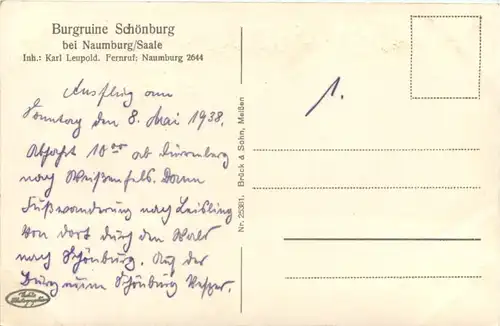 Burgruine Schönburg
bei Naumburg/Saale
Inh.: Karl Leupold. Fernruf: Naumburg 2644
Ausflug am
Sonntag den 8. Mai 1938.
Abfahrt 10⁰⁰ ab Dürrenberg
nach Weißenfels. Dann
Fußwanderung nach Leisling
Von dort durch den Wald
nach Schönburg. Auf der
Burgruine Schönburg Vesper.
1.
Nr. 25381. Brück & Sohn, Meißen